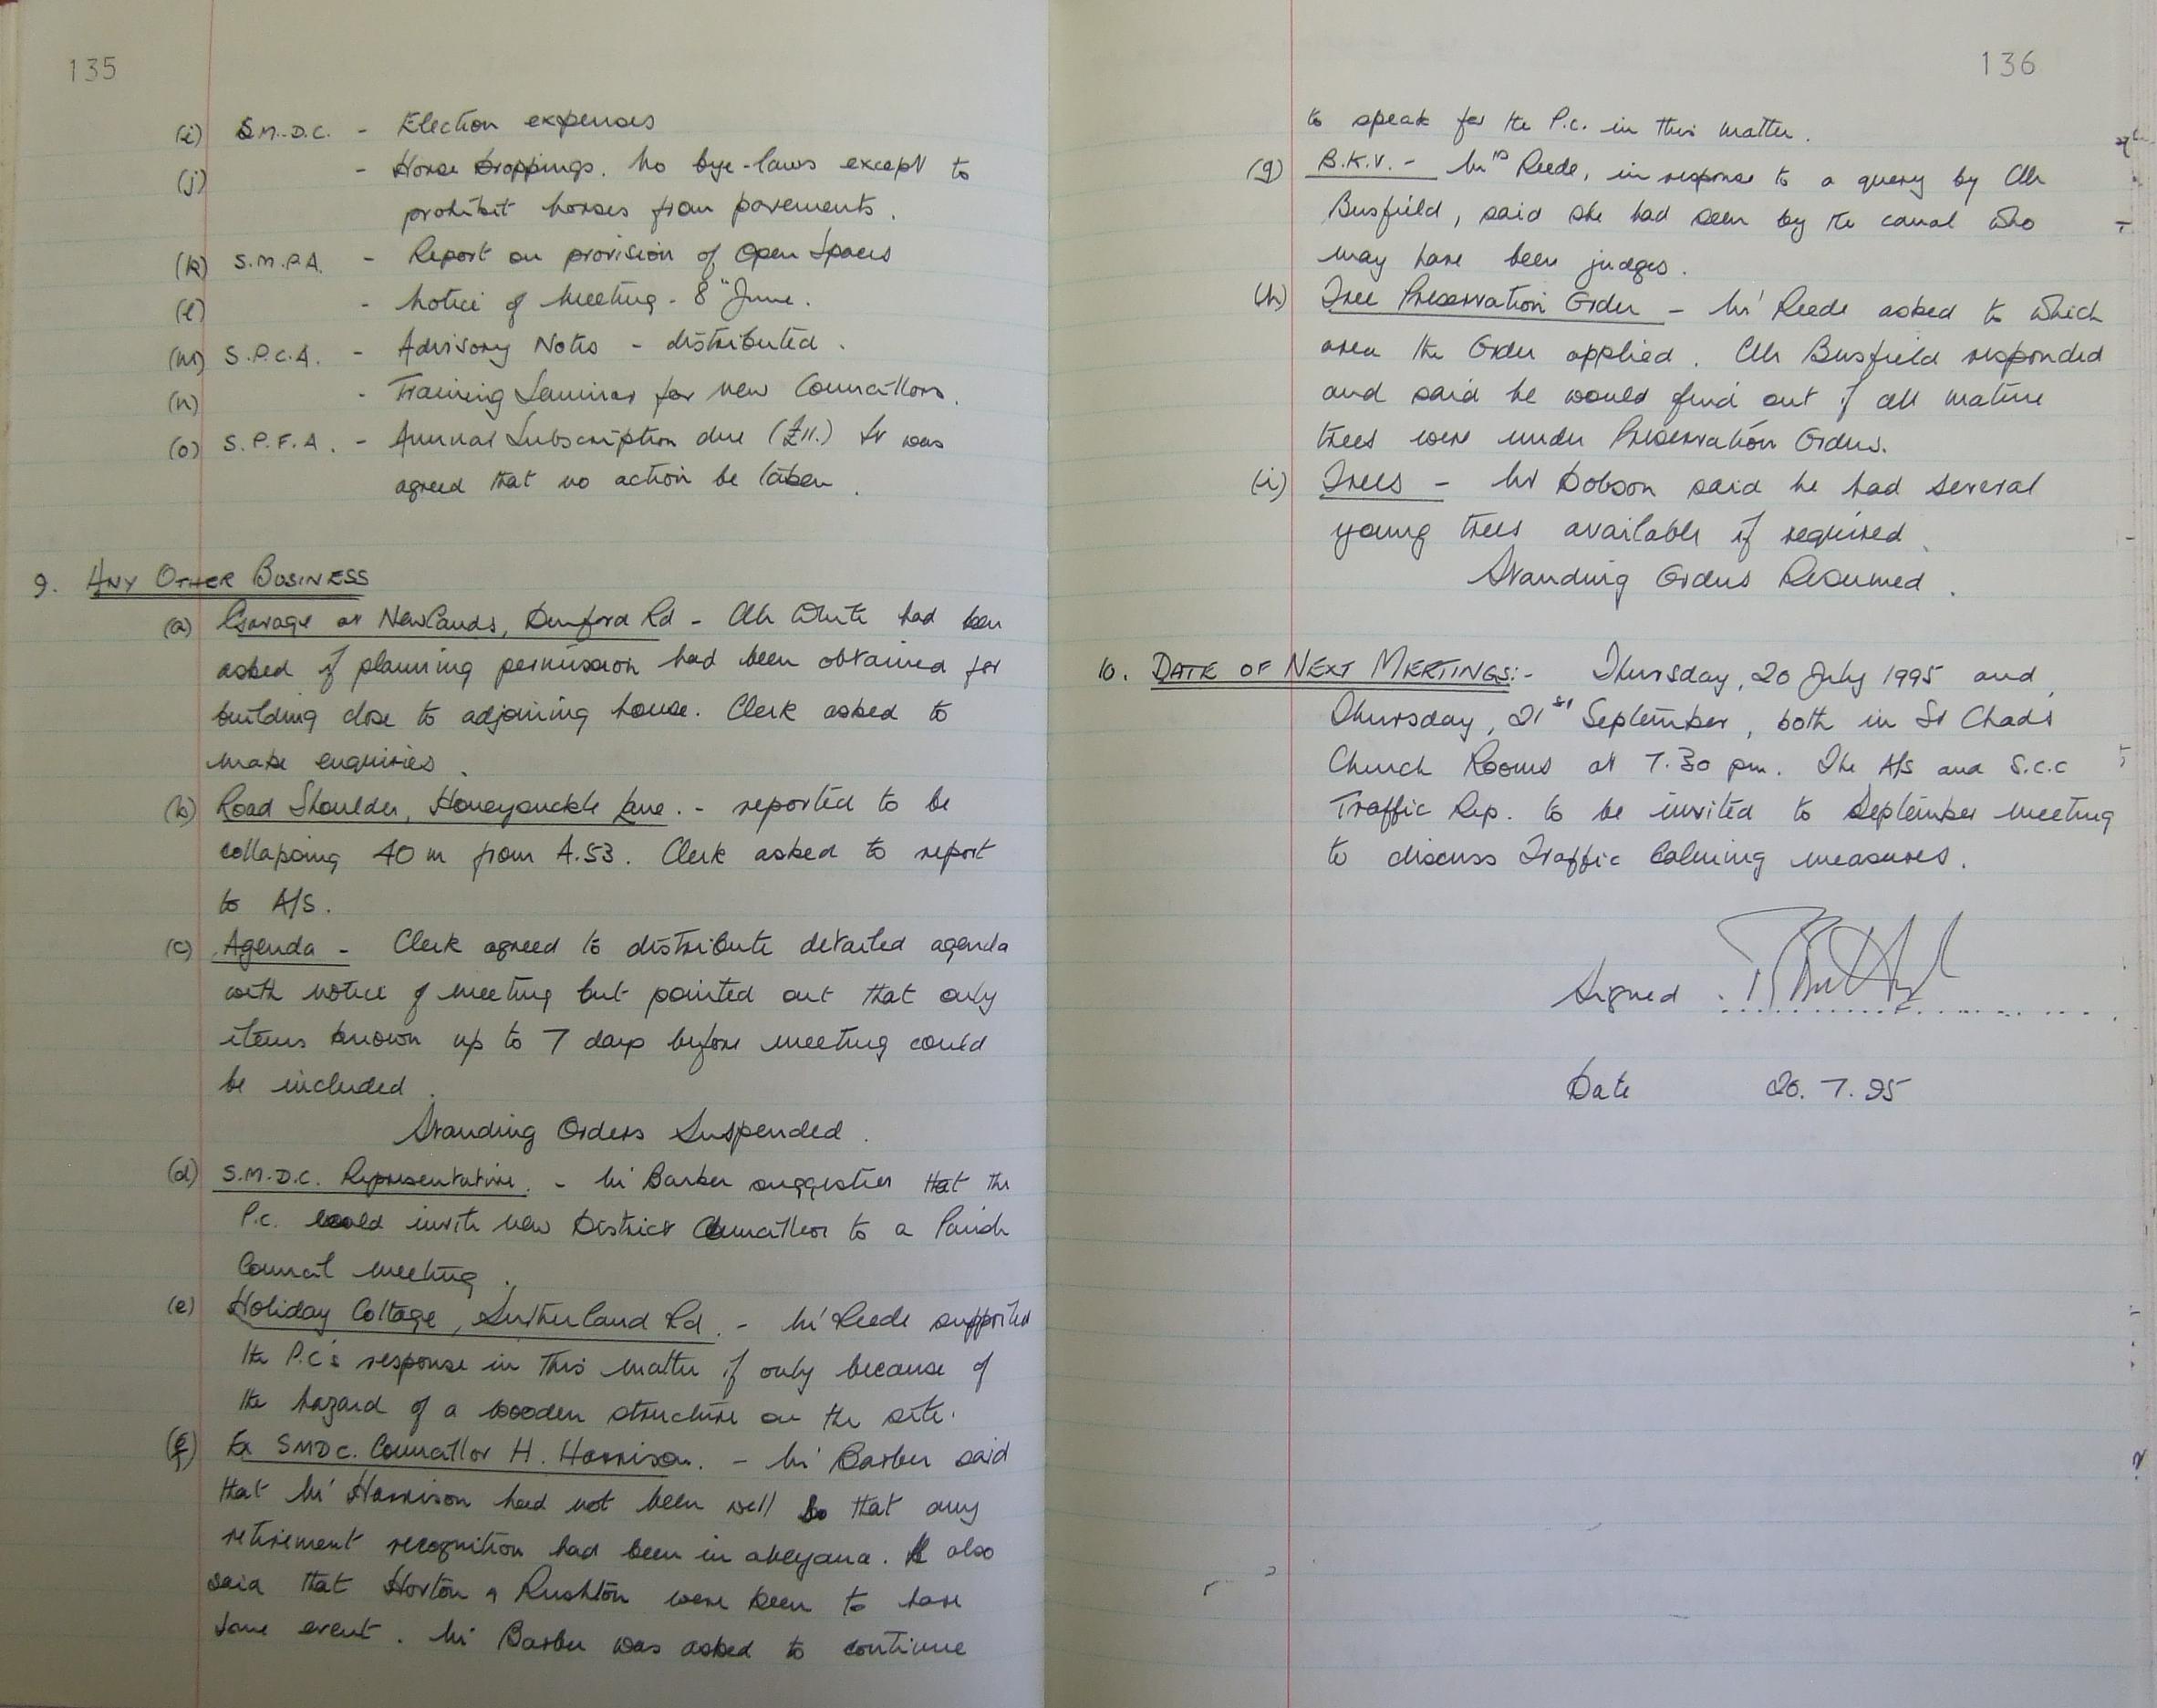 135
(i) S.M.D.C. - Election expenses
(j) - Horse Droppings. No bye-laws except to
prohibit horses from pavements.
(k) S.M.P.A. - Report on provision of Open Spaces
(l) - Notice of Meeting - 8th June.
(m) S.P.C.A. - Advisory Notes - distributed.
(n) - Training Seminar for new Councillors.
(o) S.P.F.A. - Annual Subscription due (£11.) It was
agreed that no action be taken.
9. ANY OTHER BUSINESS
(a) Garage at Newlands, Dunford Rd - Cllr White had been
asked if planning permission had been obtained for
building close to adjoining house. Clerk asked to
make enquiries.
(b) Road Shoulder, Honeysuckle Lane. - reported to be
collapsing 40 m from A.53. Clerk asked to report
to A/S.
(c) Agenda - Clerk agreed to distribute detailed agenda
with notice of meeting but pointed out that only
items known up to 7 days before meeting could
be included.
Standing Orders Suspended.
(d) S.M.D.C. Representative. - Mr Barber suggested that the
P.C. could invite new District Councillor to a Parish
Council meeting.
(e) Holiday Cottage, Sutherland Rd. - Mr Reede supported
the P.C's response in this matter if only because of
the hazard of a wooden structure on the site.
(f) Ex SMDC. Councillor H. Harrison. - Mr Barber said
that Mr Harrison had not been well so that any
retirement recognition had been in abeyana. He also
said that Horton & Rushton were keen to have
some event. Mr Barber was asked to continue
136
to speak for the P.C. in this matter.
(g) B.K.V. - Mrs Reede, in response to a query by Cllr
Busfield, said she had seen by the canal who
may have been judges.
(h) Tree Preservation Order - Mr Reede asked to which
area the Order applied. Cllr Busfield responded
and said he would find out if all mature
trees were under Preservation Orders.
(i) Trees - Mr Dobson said he had several
young trees available if required.
Standing Orders Resumed.
10. DATE OF NEXT MEETINGS:- Thursday, 20 July 1995 and
Thursday, 21st September, both in St Chads
Church Rooms at 7.30 pm. The A/S and S.C.C
Traffic Rep. to be invited to September meeting
to discuss Traffic Calming measures.
Signed
Date 20.7.95